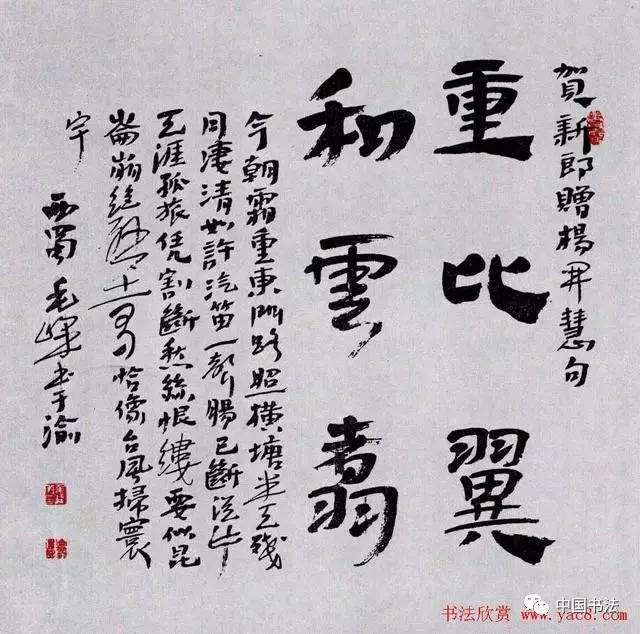 賀新郎贈楊开慧句
重比翼
和雲翥
今朝霜重東門路照橫塘半天残
月凄清如許汽笛一声腸已斷從此
天涯孤旅凭割斷愁絲恨縷要似昆
崙崩絕壁又恰像台風掃寰
宇
西蜀毛嶸书于渝
中国书法
书法欣赏 www.yac8.com